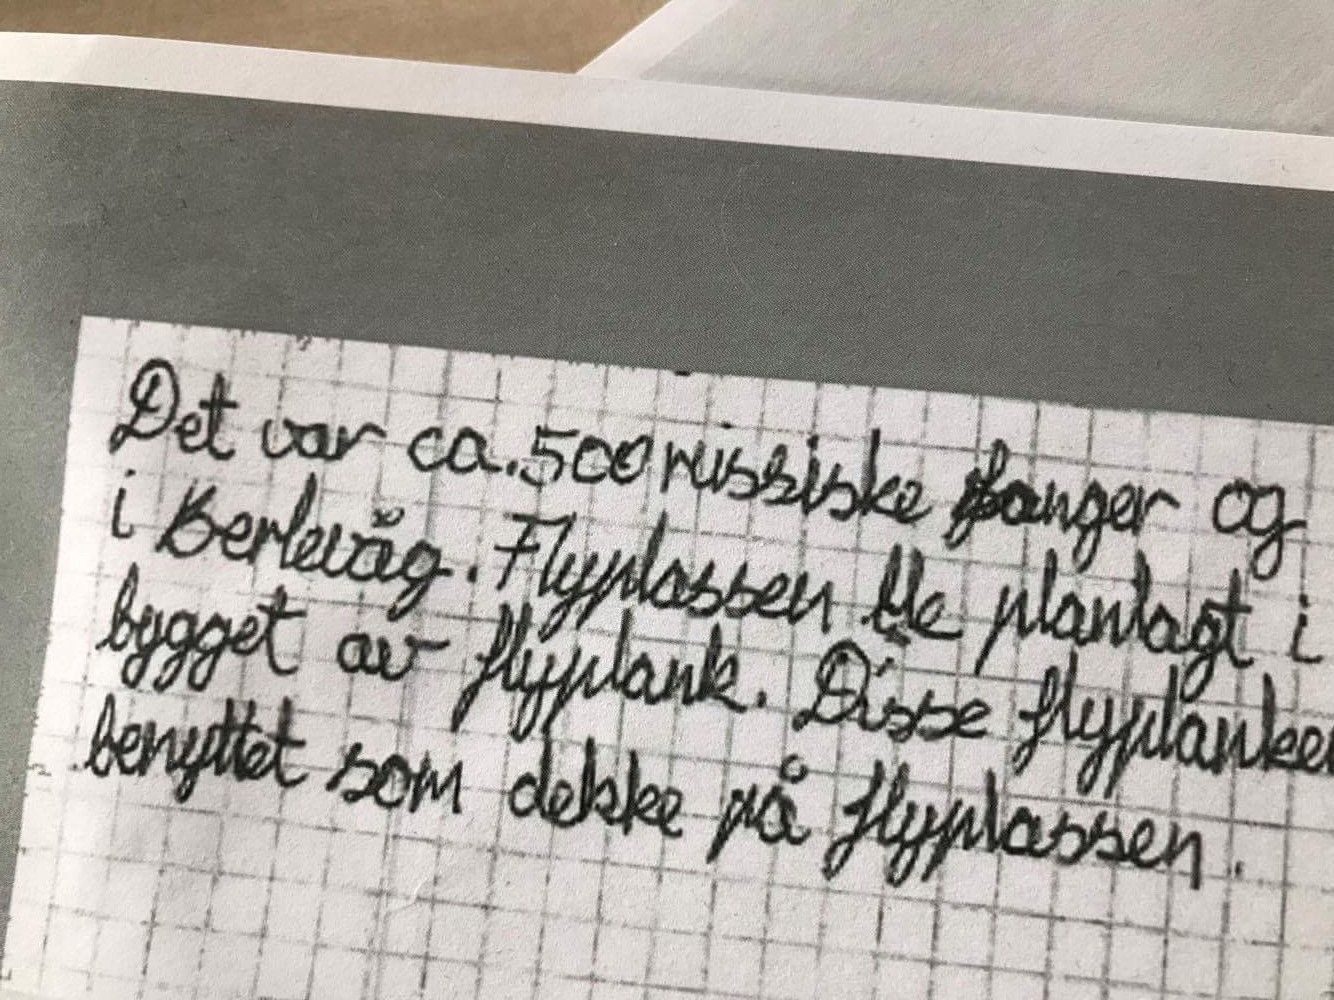 Det var ca. 500 russiske fanger og
i Berlevåg. Flyplassen ble planlagt i
bygget av flyplank. Disse flyplanker
benyttet som dekke på flyplassen.